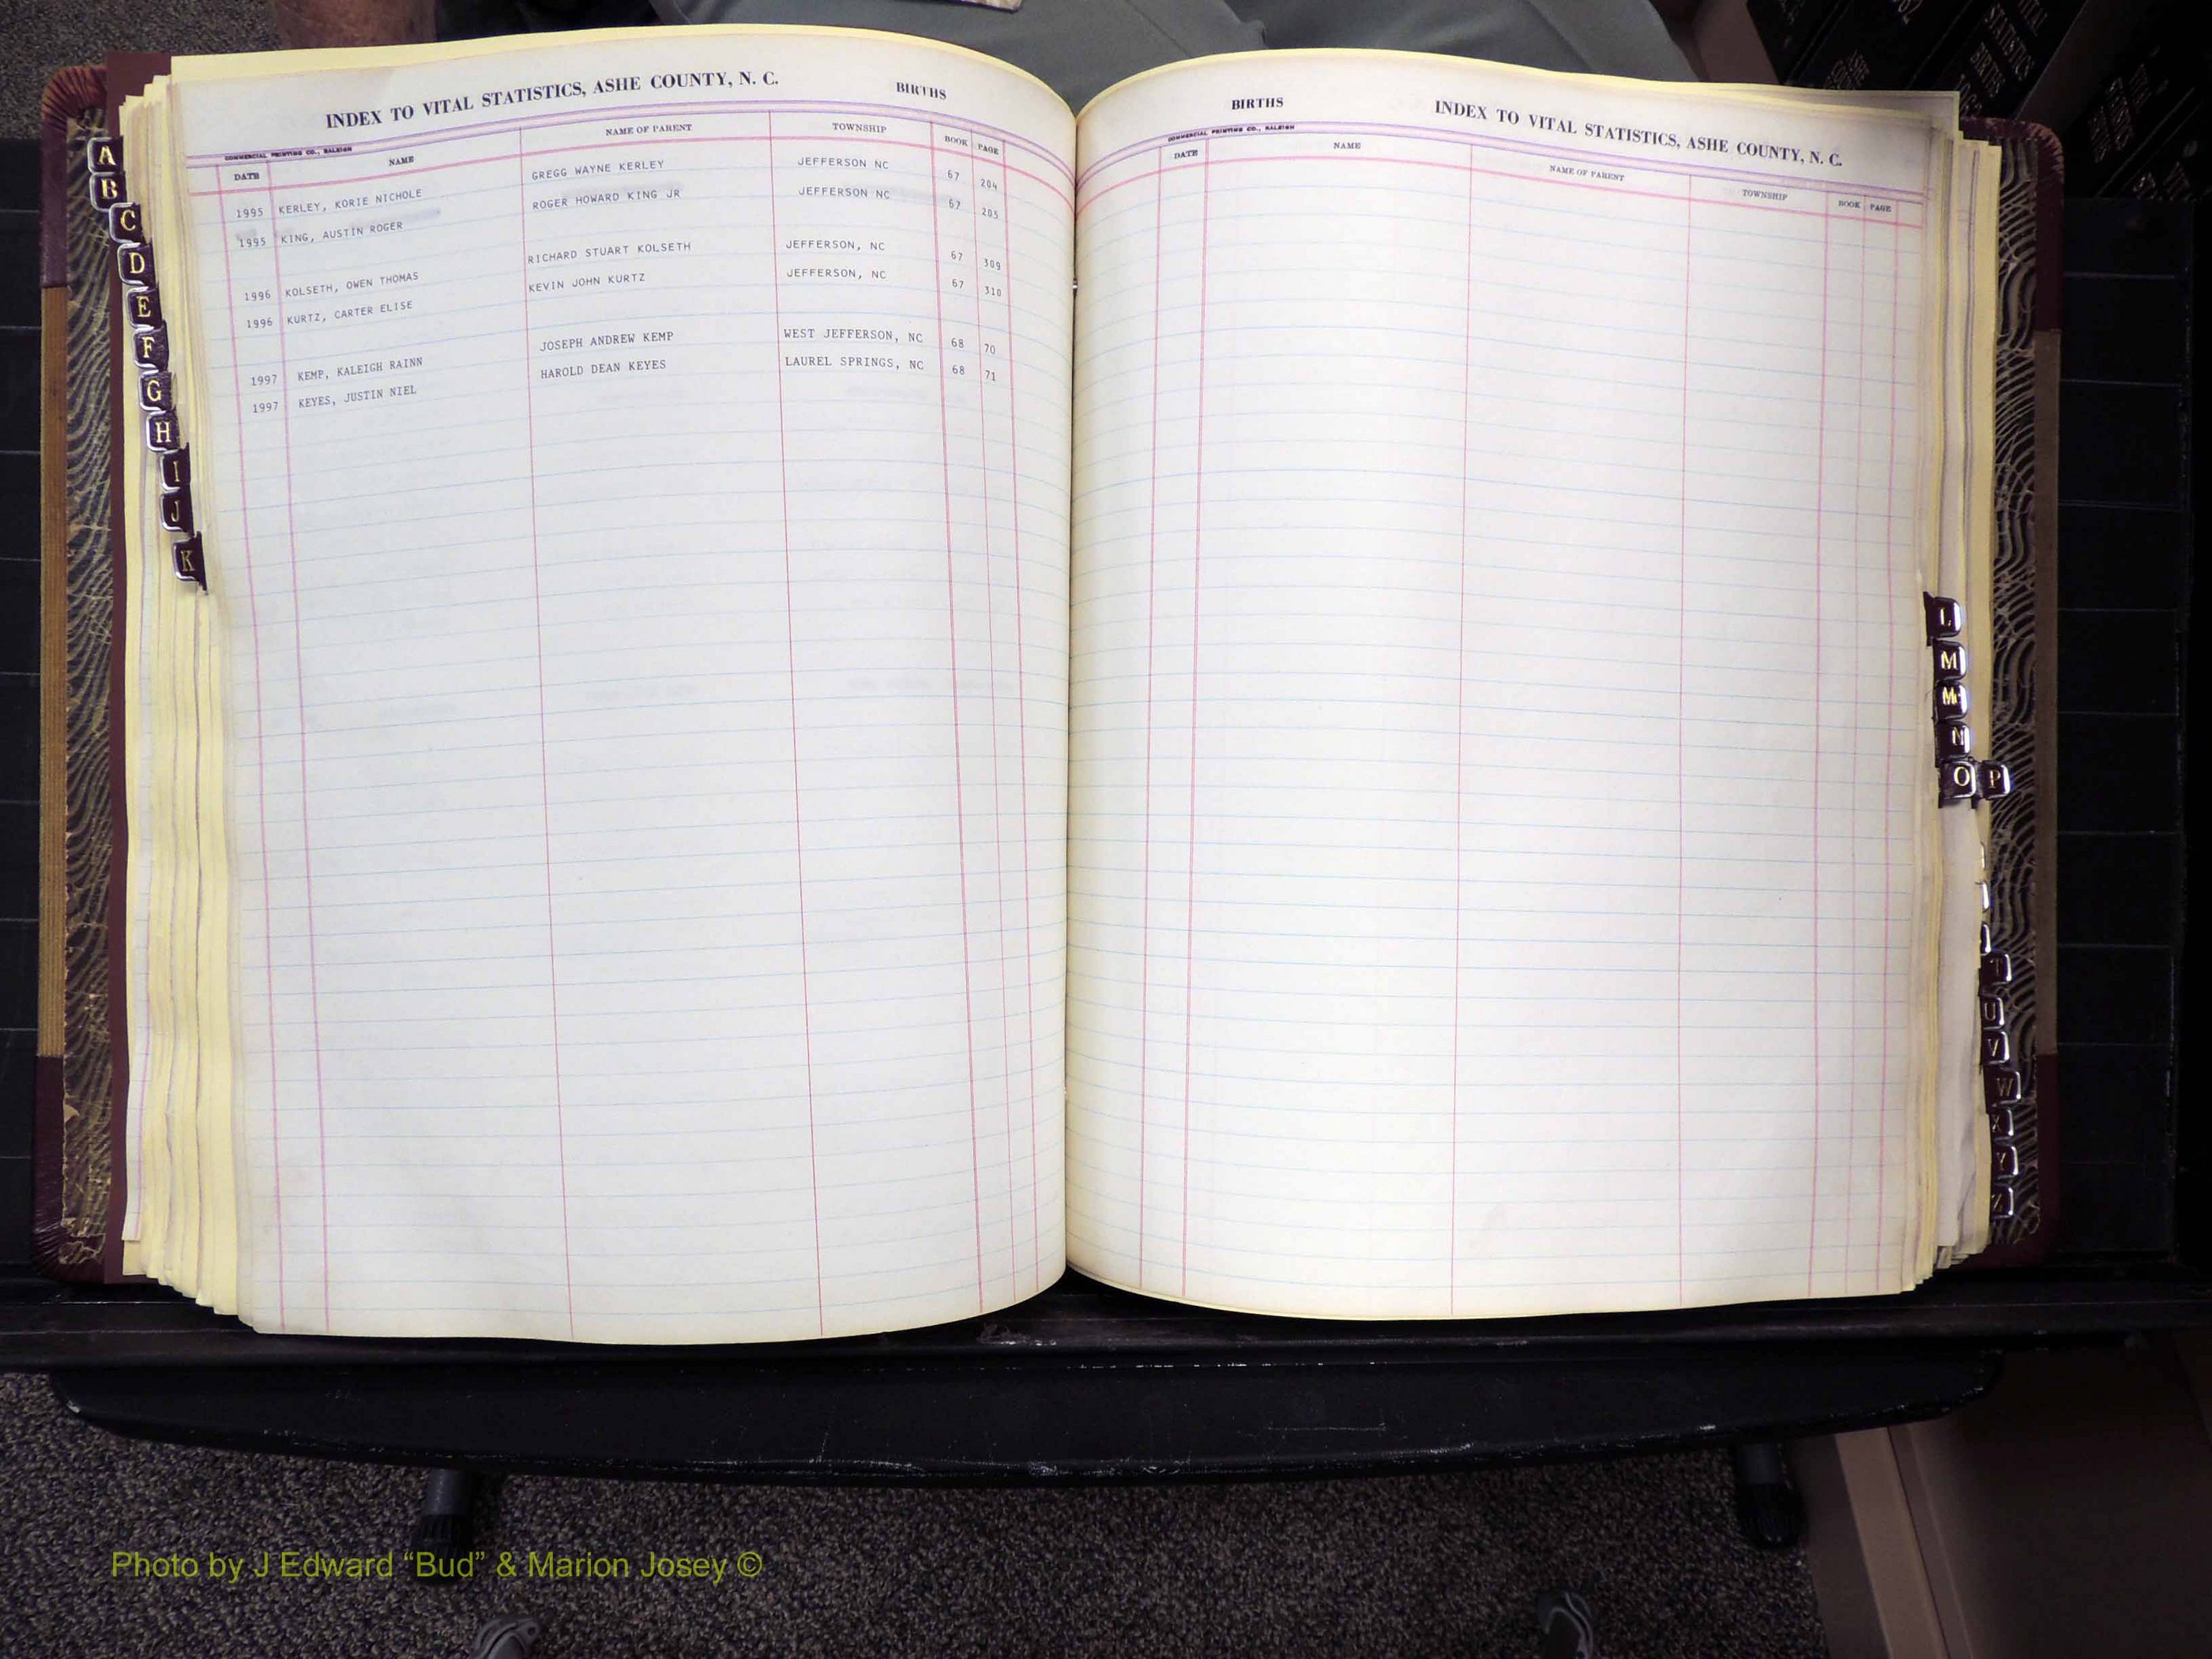 INDEX TO VITAL STATISTICS, ASHE COUNTY, N. C. BIRTHS
COMMERCIAL PRINTING CO., RALEIGH
DATE NAME NAME OF PARENT TOWNSHIP BOOK PAGE
1995 KERLEY, KORIE NICHOLE GREGG WAYNE KERLEY JEFFERSON NC 67 204
1995 KING, AUSTIN ROGER ROGER HOWARD KING JR JEFFERSON NC 67 205
1996 KOLSETH, OWEN THOMAS RICHARD STUART KOLSETH JEFFERSON, NC 67 309
1996 KURTZ, CARTER ELISE KEVIN JOHN KURTZ JEFFERSON, NC 67 310
1997 KEMP, KALEIGH RAINN JOSEPH ANDREW KEMP WEST JEFFERSON, NC 68 70
1997 KEYES, JUSTIN NIEL HAROLD DEAN KEYES LAUREL SPRINGS, NC 68 71
A
B
C
D
E
F
G
H
I
J
K
BIRTHS INDEX TO VITAL STATISTICS, ASHE COUNTY, N. C.
COMMERCIAL PRINTING CO., RALEIGH
DATE NAME NAME OF PARENT TOWNSHIP BOOK PAGE
L
M
Mc
N
O P
T
U
V
W
X
Y
VITAL
STATISTICS
BIRTHS
Photo by J Edward “Bud” & Marion Josey ©